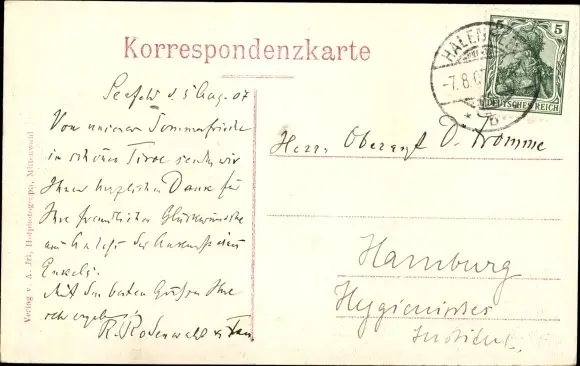 Korrespondenzkarte
5 5
DEUTSCHES REICH
HALEN
-7.8.07
* b
Seefeld d. 5 Aug. 07
Von unserer Sommerfrische
in schönen Tirol senden wir
Ihnen herzlichen Dank für
Ihre freundlichen Glückwünsche
aus Anlass der Ankunft eines
Enkels.
Mit den besten Grüßen Ihr
sehr ergebener
R. Rosenwald u. Frau
Herrn Oberarzt D. Tromme
Hamburg
Hygienisches
Institut
Verlag v. A. Hofphotograph, Mittenwald